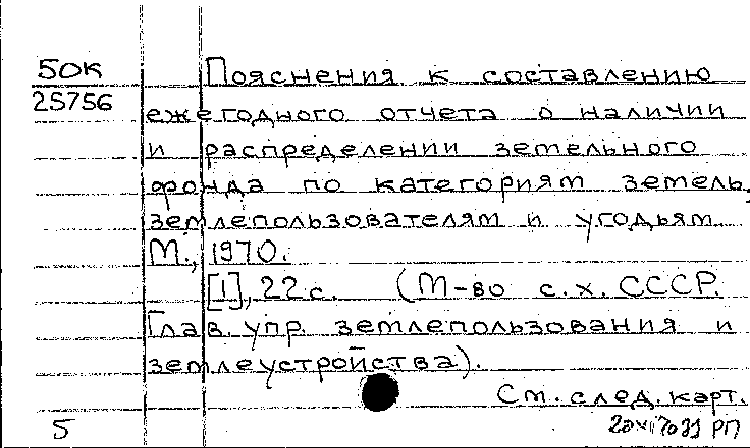 50К
25756
Пояснения к составлению
ежегодного отчета о наличии
и распределении земельного
фонда по категориям земель,
землепользователям и угодьям
М., 1970.
[1], 22 с. (М-во с.х. СССР.
Глав. упр. землепользования и
землеустройства).
См. след. карт.
5
РП